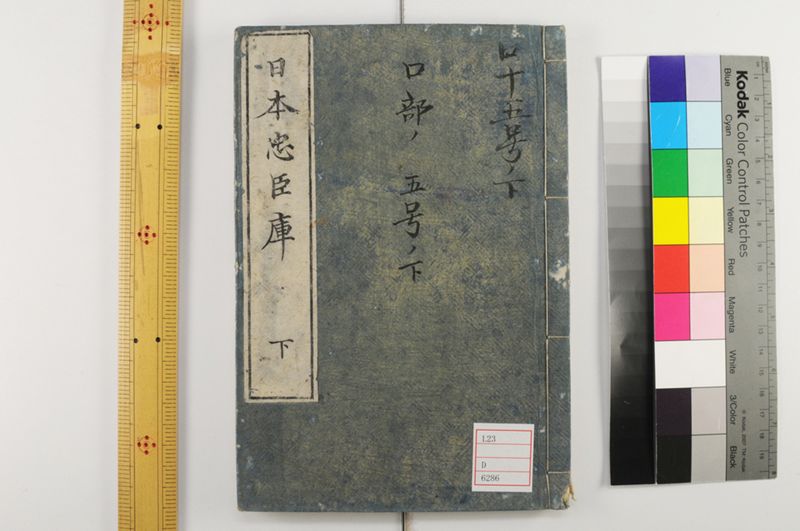 ロ十五号ノ下
ロ部ノ五号ノ下
日本忠臣庫 下
L23
D
6286
Kodak Color Control Patches
Blue
Cyan
Green
Yellow
Red
Magenta
White
3/Color
Black